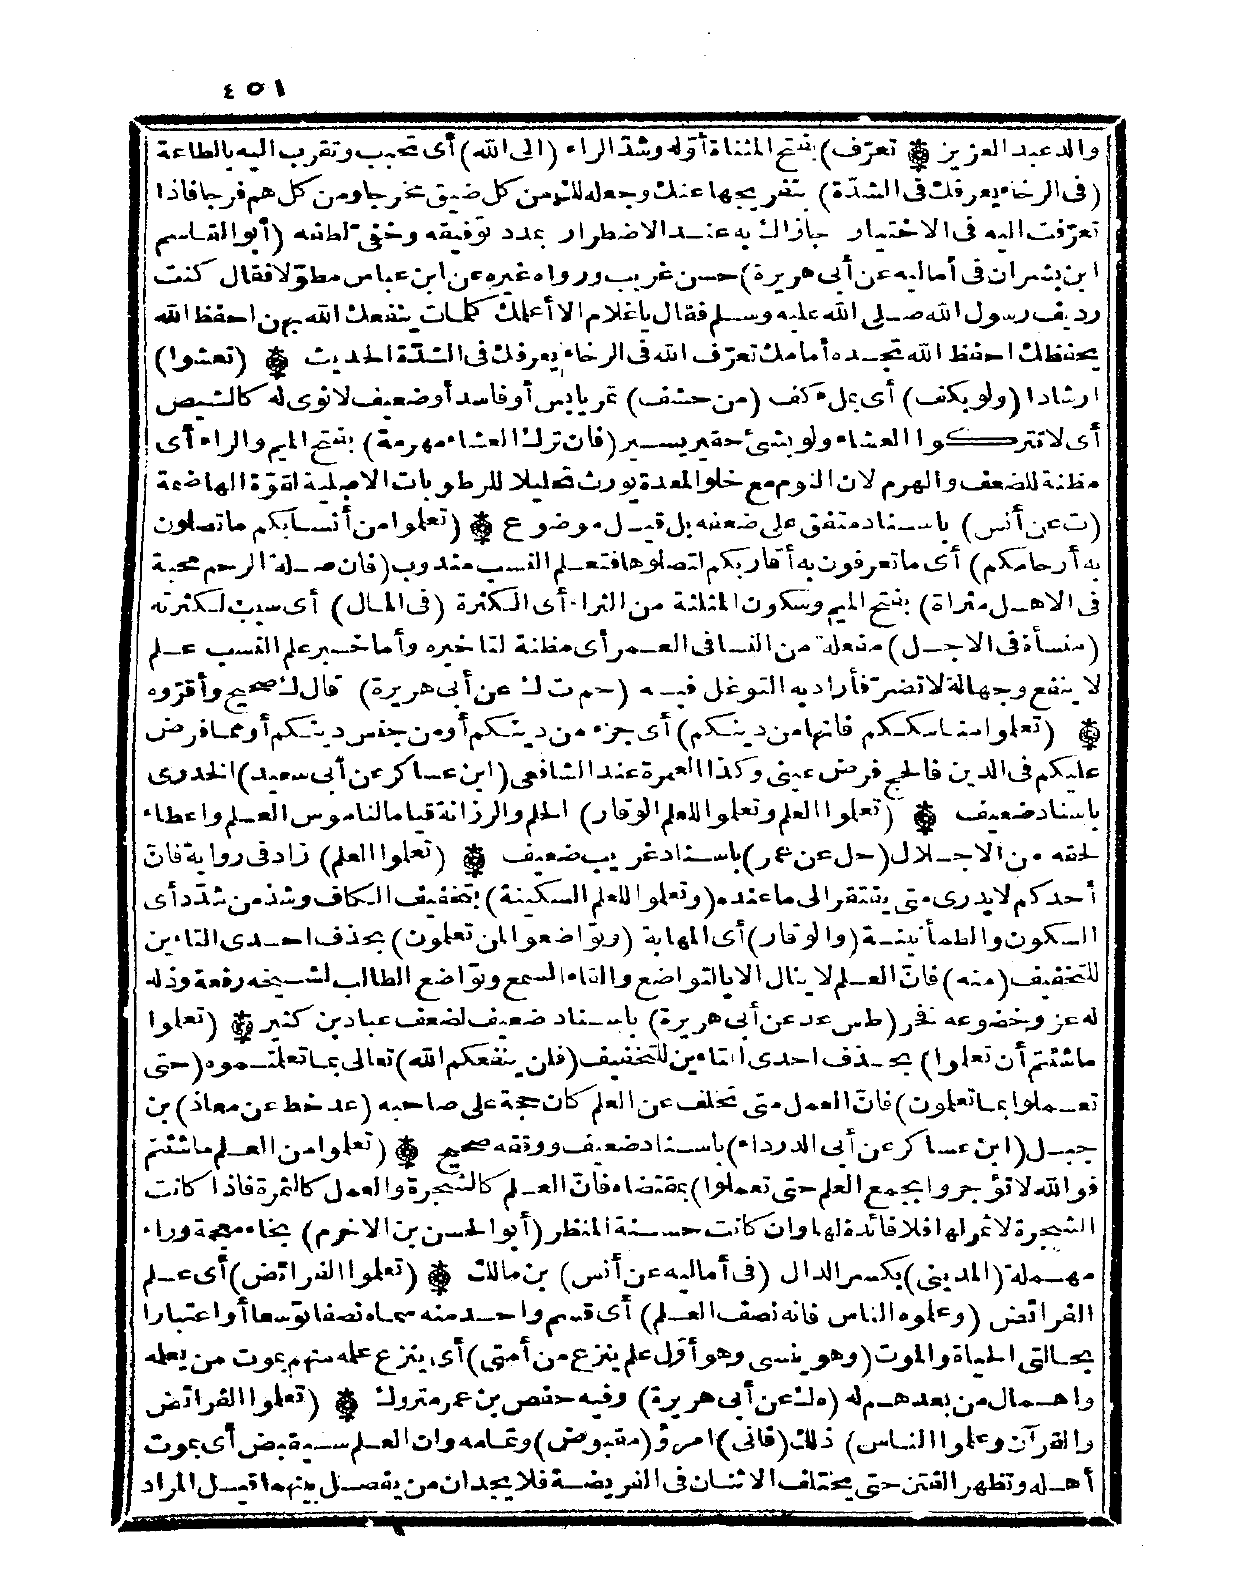 ٤٥١
والد عبد العزيز ۞ تعرّف) بفتح المثناة أوّله وشدّ الراء (الى الله) أى تحبب وتقرب اليه بالطاعة
(فى الرخاء يعرفك فى الشدّة) بتفريجها عنك وجعله لك من كل ضيق مخرجا ومن كل هم فرجا فاذا
تعرّفت اليه فى الاختيار جازاك به عند الاضطرار بمدد توفيقه وخفى لطفه (أبو القاسم
ابن بشران فى أماليه عن أبى هريرة) حسن غريب ورواه غيره عن ابن عباس مطوّلا فقال كنت
رديف رسول الله صلى الله عليه وسلم فقال ياغلام الا أعلمك كلمات ينفعك الله بهن احفظ الله
يحفظك احفظ الله تجده أمامك تعرّف الله فى الرخاء يعرفك فى الشدّة الحديث ۞ (تعشوا)
ارشادا (ولو بكف) أى بملء كف (من حشف) تمر يابس أو فاسد أو ضعيف لا نوى له كالشيص
أى لا تتركوا العشاء ولو بشئ حقير يسير (فان ترك العشاء مهرمة) بفتح الميم والراء أى
مظنة للضعف والهرم لان النوم مع خلو المعدة يورث تحليلا للرطوبات الاصلية لقوّة الهاضمة
(ت عن أنس) باسناد متفق على ضعفه بل قيل موضوع ۞ (تعلموا من أنسابكم ما تصلون
به أرحامكم) أى ما تعرفون به أقاربكم لتصلوها فتعلم النسب مندوب (فان صلة الرحم محبة
فى الاهل مثراة) بفتح الميم وسكون المثلثة من الثراء أى الكثرة (فى المال) أى سبب لكثرته
(منسأة فى الاجل) مفعلة من النسا فى العمر أى مظنة لتاخيره وأما خبر علم النسب علم
لا ينفع وجهالة لا تضرّ فأراد به التوغل فيه (حم ت ك عن أبى هريرة) قال ك صحيح وأقرّوه
۞ (تعلموا مناسككم فانها من دينكم) أى جزء من دينكم أو من جنس دينكم أو مما فرض
عليكم فى الدين فالحج فرض عينى وكذا العمرة عند الشافعى (ابن عساكر عن أبى سعيد) الخدرى
باسناد ضعيف ۞ (تعلموا العلم وتعلموا للعلم الوقار) الحلم والرزانة قياما لناموس العلم واعطاء
لحقه من الاجلال (حل عن عمر) باسناد غريب ضعيف ۞ (تعلموا العلم) زاد فى رواية فانّ
أحدكم لا يدرى متى يفتقر الى ما عنده (وتعلموا للعلم السكينة) بتخفيف الكاف وشذ من شدّد أى
السكون والطمأنينة (والوقار) أى المهابة (وتواضعوا لمن تعلمون) بحذف احدى التاءين
للتخفيف (منه) فانّ العلم لا ينال الا بالتواضع والقاء السمع وتواضع الطالب لشيخه رفعة وذله
له عز وخضوعه فخر (طس عد عن أبى هريرة) باسناد ضعيف لضعف عباد بن كثير ۞ (تعلموا
ما شئتم أن تعلموا) بحذف احدى التاءين للتخفيف (فلن ينفعكم الله) تعالى بما تعلمتموه (حتى
تعملوا بما تعلمون) فانّ العمل متى تخلف عن العلم كان حجة على صاحبه (عد خط عن معاذ) بن
جبل (ابن عساكر عن أبى الدرداء) باسناد ضعيف ووقفه صحيح ۞ (تعلموا من العلم ما شئتم
فوالله لا تؤجروا بجمع العلم حتى تعملوا) بمقتضاه فانّ العلم كالشجرة والعمل كالثمرة فاذا كانت
الشجرة لا ثمر لها فلا فائدة لها وان كانت حسنة المنظر (أبو الحسن بن الاخرم) بخاء معجمة وراء
مهملة (المدينى) بكسر الدال (فى أماليه عن أنس) بن مالك ۞ (تعلموا الفرائض) أى علم
الفرائض (وعلموه الناس فانه نصف العلم) أى قسم واحد منه سماه نصفا توسعا أو اعتبارا
بحالتى الحياة والموت (وهو ينسى وهو أوّل علم ينزع من أمتى) أى ينزع علمه منهم بموت من يعلمه
واهمال من بعدهم له (ه ك عن أبى هريرة) وفيه حفص بن عمر متروك ۞ (تعلموا الفرائض
والقرآن وعلموا الناس) ذلك (فانى) امرؤ (مقبوض) وتمامه وان العلم سيقبض أى بموت
أهله وتظهر الفتن حتى يختلف الاثنان فى الفريضة فلا يجدان من يفصل بينهما قيل المراد